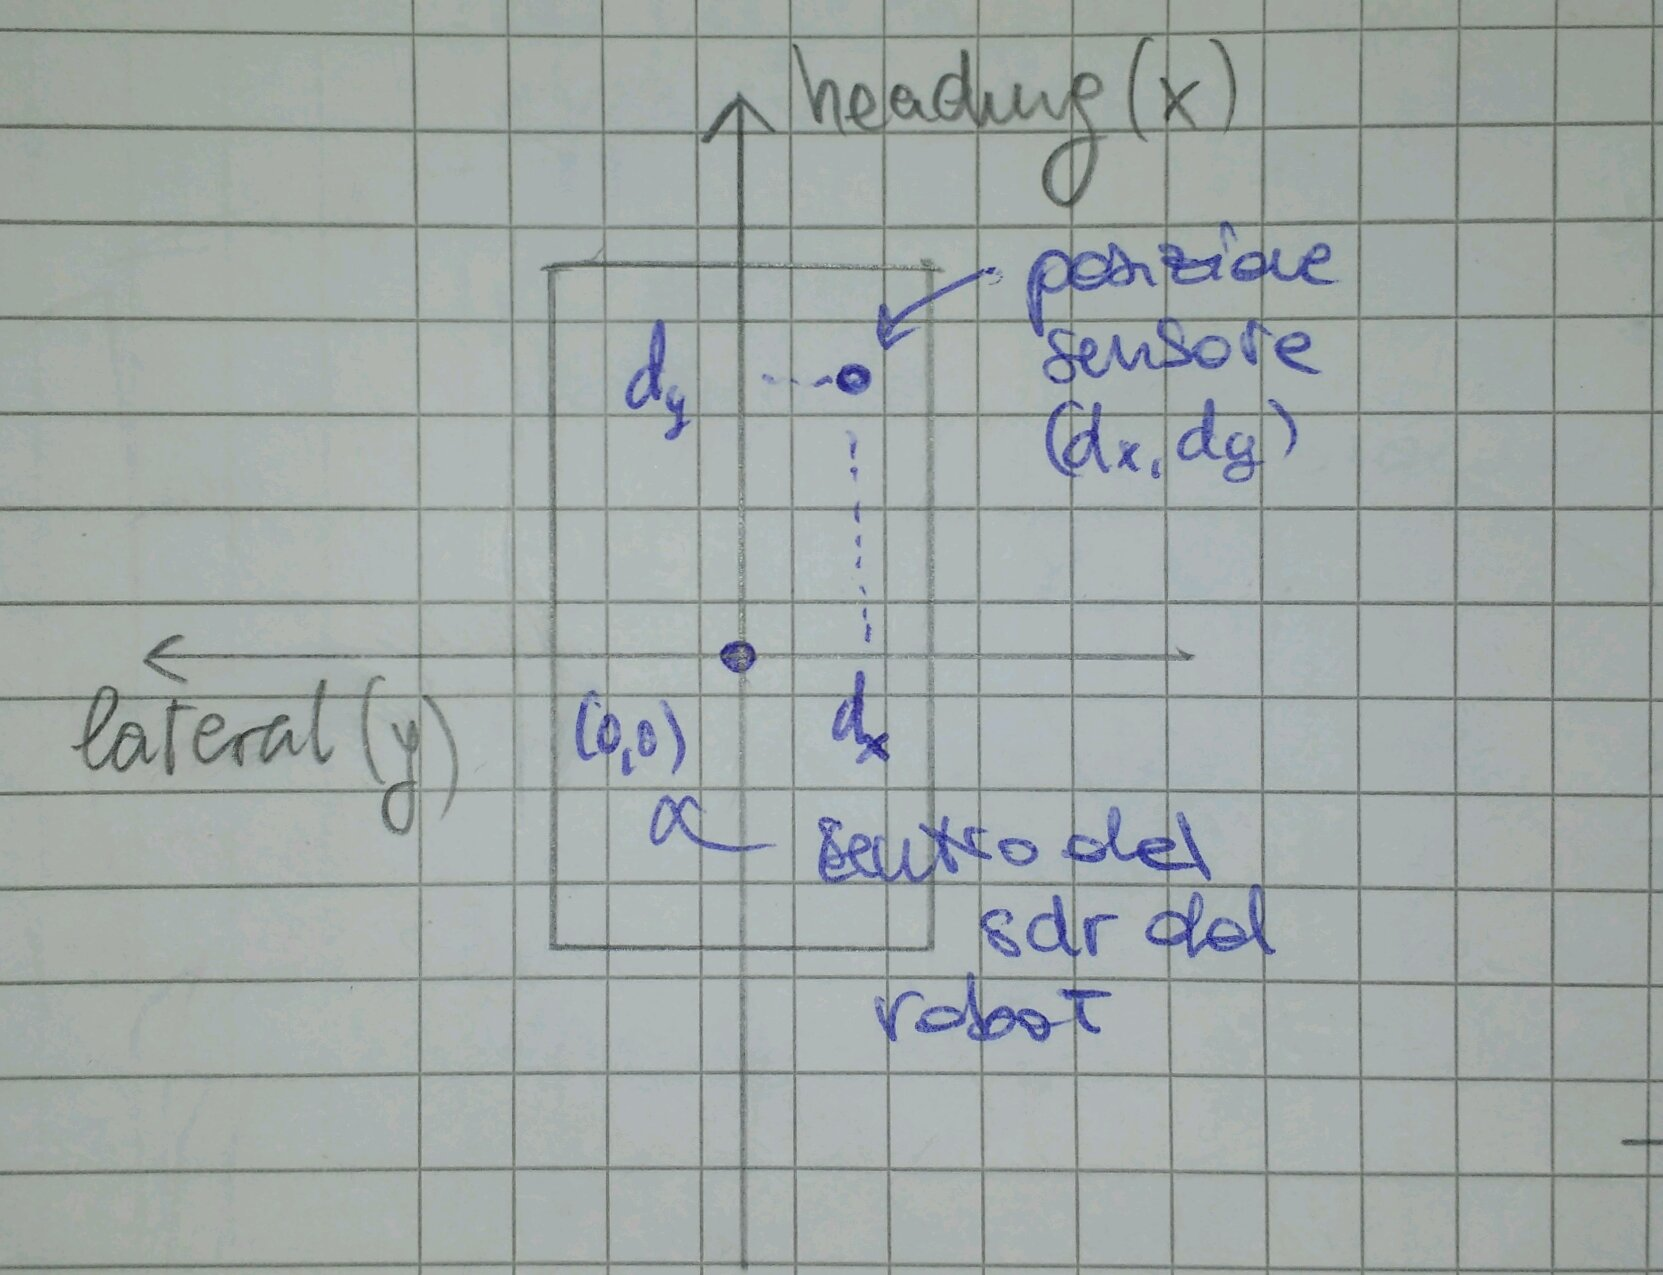 heading (x)
posizione
sensore
(dx, dy)
dy
lateral (y)
(0,0)
dx
centro del
sdr del
robot